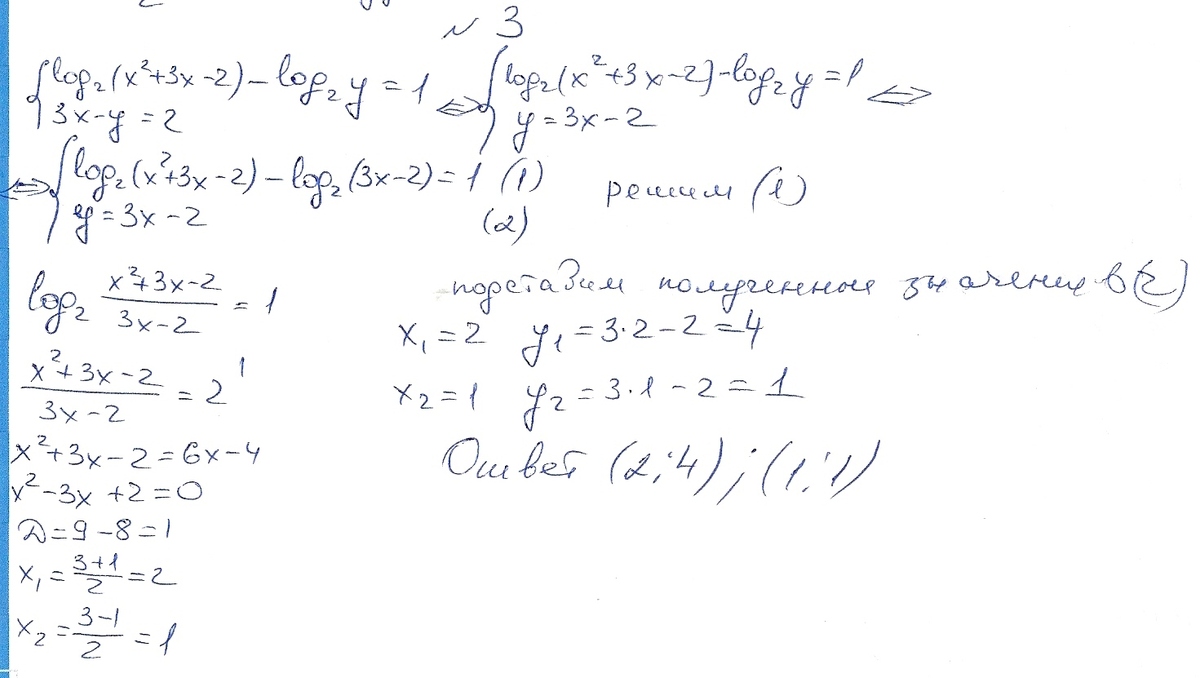 № 3
{ log₂(x²+3x-2) - log₂y = 1 <=> { log₂(x²+3x-2) - log₂y = 1 <=>
3x-y = 2 y = 3x-2
<=> { log₂(x²+3x-2) - log₂(3x-2) = 1 (1) решим (1)
y = 3x-2 (2)
log₂ (x²+3x-2)/(3x-2) = 1
(x²+3x-2)/(3x-2) = 2¹
x²+3x-2 = 6x-4
x²-3x+2 = 0
D = 9-8 = 1
x₁ = (3+1)/2 = 2
x₂ = (3-1)/2 = 1
подставим полученное значение в (2)
x₁ = 2 y₁ = 3·2-2 = 4
x₂ = 1 y₂ = 3·1-2 = 1
Ответ (2;4); (1;1)